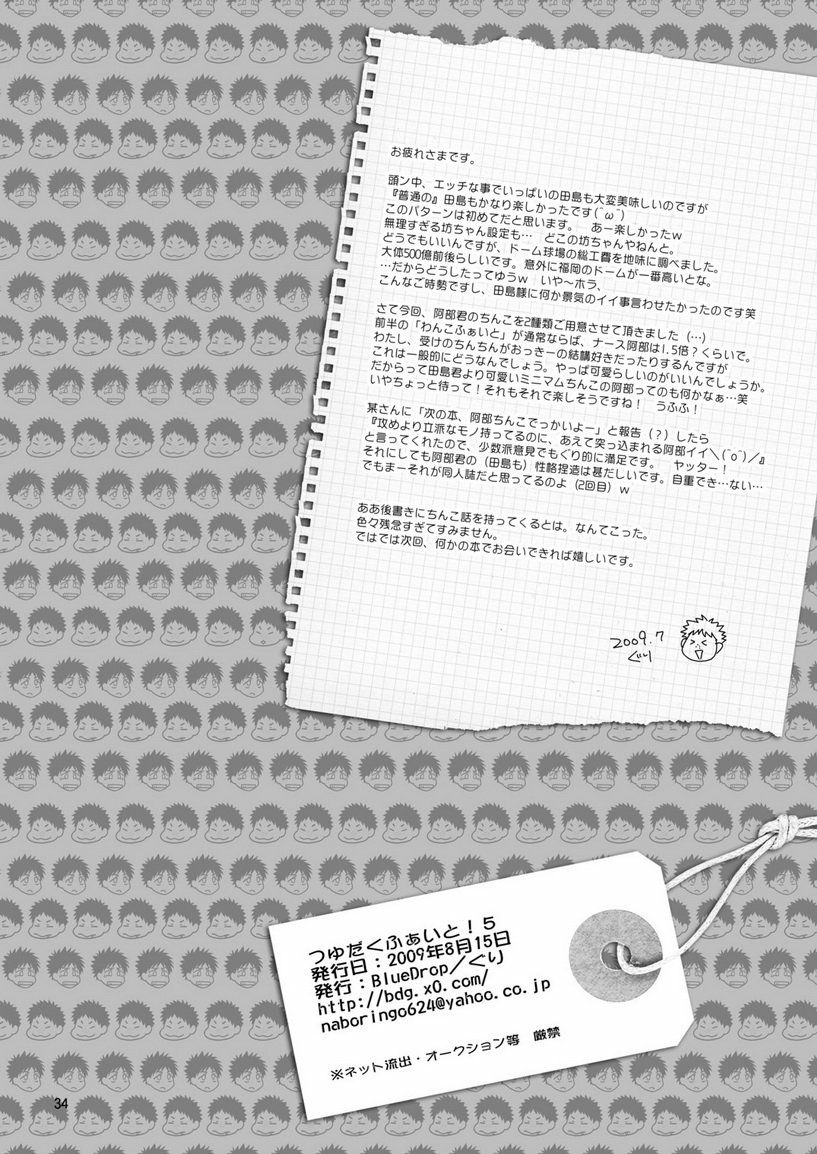 お疲れさまです。
頭ン中、エッチな事でいっぱいの田島も大変美味しいのですが
『普通の』田島もかなり楽しかったです(´ω`)
このパターンは初めてだと思います。　あー楽しかったｗ
無理すぎる坊ちゃん設定も…　どこの坊ちゃんやねんと。
どうでもいいんですが、ドーム球場の総工費を地味に調べました。
大体500億前後らしいです。意外に福岡のドームが一番高いとな。
…だからどうしたってゆうｗ　いや〜ホラ、
こんなご時勢ですし、田島様に何か景気のイイ事言わせたかったのです笑
さて今回、阿部君のちんこを2種類ご用意させて頂きました（…）
前半の「わんこふぁいと」が通常ならば、ナース阿部は1.5倍？くらいで。
わたし、受けのちんちんがおっきーの結構好きだったりするんですが
これは一般的にどうなんでしょう。やっぱ可愛らしいのがいいんでしょうか。
だからって田島君より可愛いミニマムちんこの阿部ってのも何かなぁ…笑
いやちょっと待って！それもそれで楽しそうですね！　うふふ！
某さんに「次の本、阿部ちんこでっかいよー」と報告（？）したら
『攻めより立派なモノ持ってるのに、あえて突っ込まれる阿部イイ＼(^o^)／』
と言ってくれたので、少数派意見でもぐり的に満足です。　ヤッター！
それにしても阿部君の（田島も）性格捏造は甚だしいです。自重でき…ない…
でもまーそれが同人誌だと思ってるのよ（2回目）ｗ
ああ後書きにちんこ話を持ってくるとは。なんてこった。
色々残念すぎてすみません。
ではでは次回、何かの本でお会いできれば嬉しいです。
2009.7
ぐり
つゆだくふぁいと！5
発行日：2009年8月15日
発行：BlueDrop／ぐり
http://bdg.x0.com/
naboringo624@yahoo.co.jp
※ネット流出・オークション等　厳禁
34